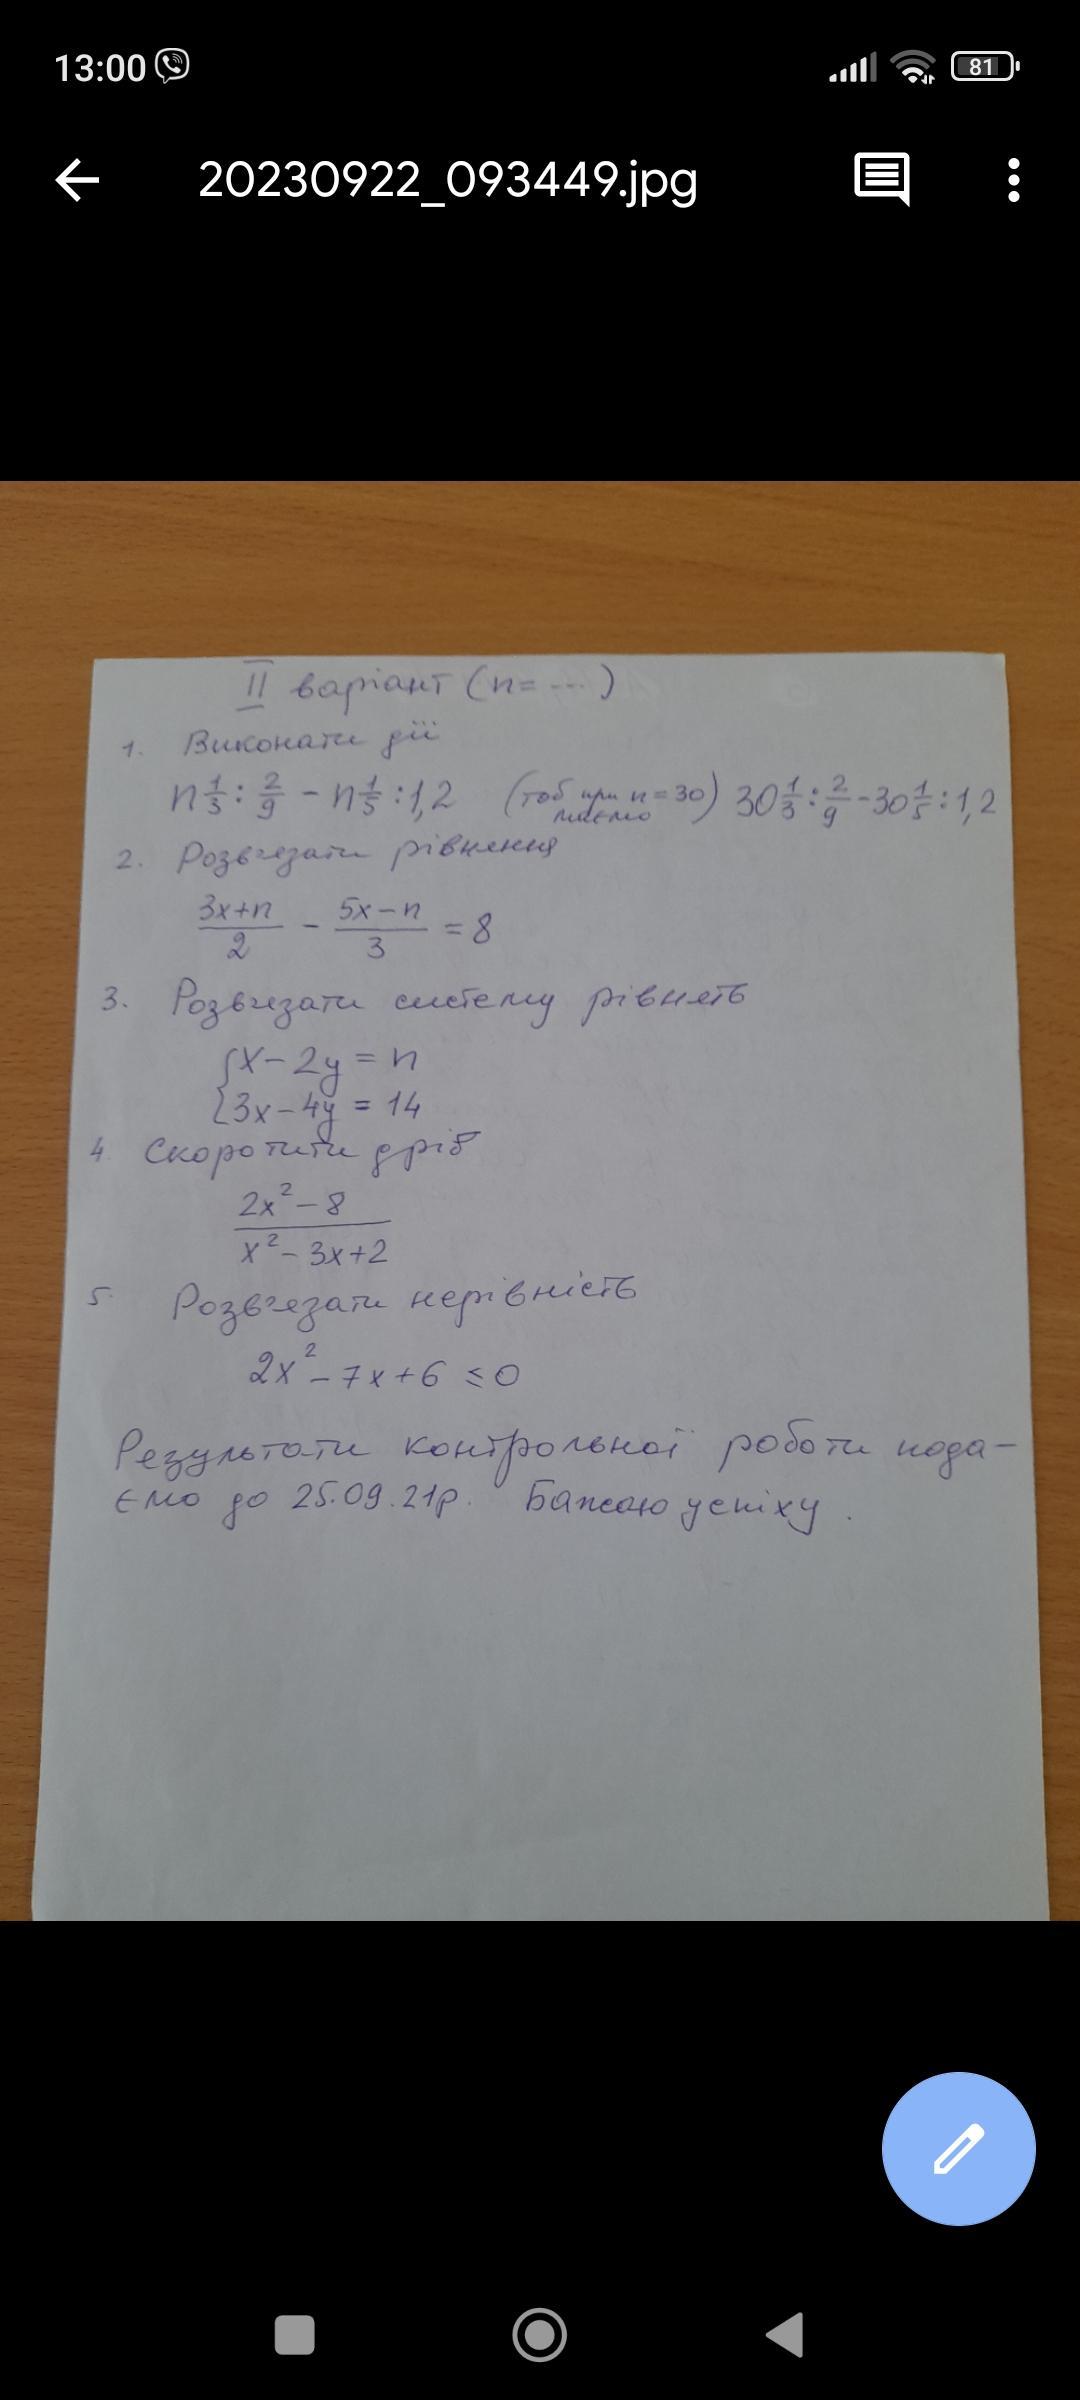 13:00
81
20230922_093449.jpg
II варіант (n= ....)
1. Виконати дії
n 1/3 : 2/9 - n 1/5 : 1,2 (тоб при n = 30) 30 1/3 : 2/9 - 30 1/5 : 1,2
маємо
2. Розв'язати рівняння
(3x+n)/2 - (5x-n)/3 = 8
3. Розв'язати систему рівнять
{x - 2y = n
{3x - 4y = 14
4. Скоротити дріб
(2x² - 8)/(x² - 3x + 2)
5. Розв'язати нерівність
2x² - 7x + 6 ≤ 0
Результати контрольної роботи пода-
ємо до 25.09.21р. Бажаю успіху.